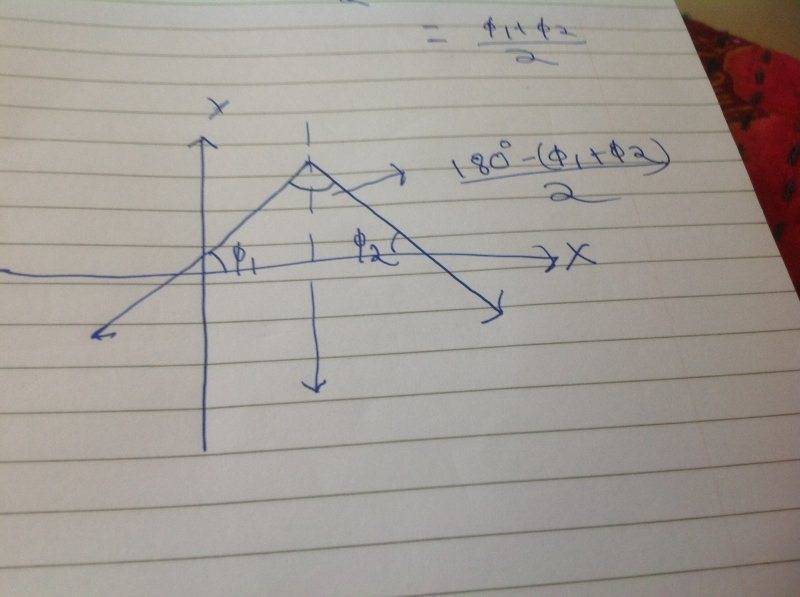 = ϕ1+ϕ2
2
Y
180°-(ϕ1+ϕ2)
2
ϕ1
ϕ2
X